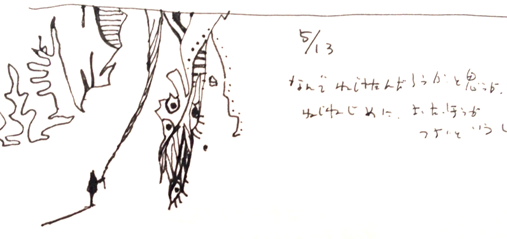 5/13
なんで ねじれたんだろうかと思うが、
ねじねじめに、よった ほうが
つよいという